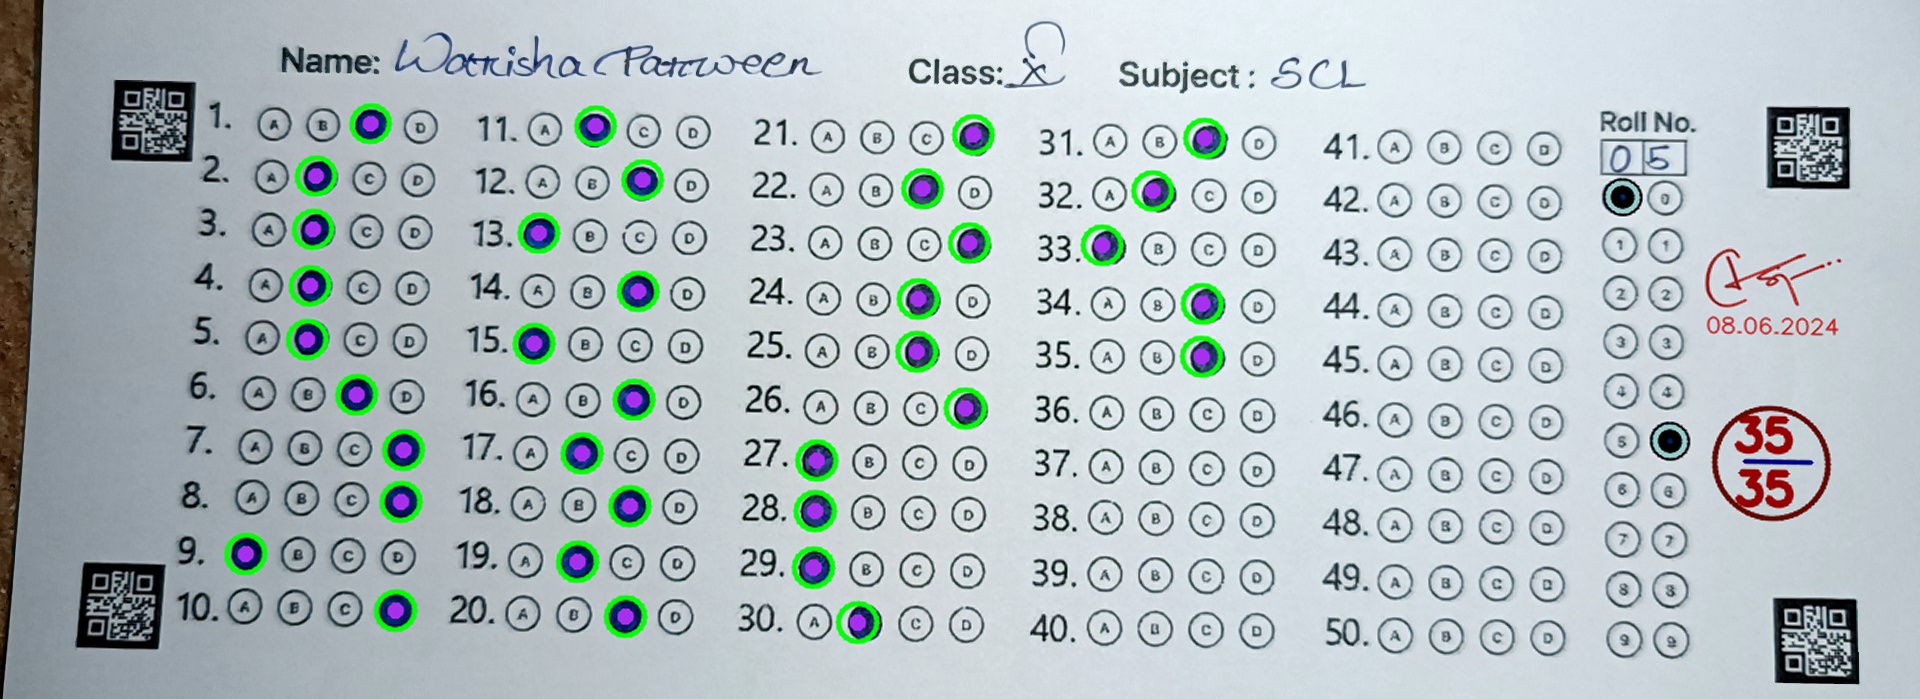 Name: Warisha Parween Class: X Subject: SCL
1. A B D
2. A C D
3. A C D
4. A C D
5. A C D
6. A B D
7. A B C
8. A B C
9. B C D
10. A B C
11. A C D
12. A B D
13. B C D
14. A B D
15. B C D
16. A B D
17. A C D
18. A B D
19. A C D
20. A B D
21. A B C
22. A B D
23. A B C
24. A B D
25. A B D
26. A B C
27. B C D
28. B C D
29. B C D
30. A C D
31. A B D
32. A C D
33. B C D
34. A B D
35. A B D
36. A B C D
37. A B C D
38. A B C D
39. A B C D
40. A B C D
41. A B C D
42. A B C D
43. A B C D
44. A B C D
45. A B C D
46. A B C D
47. A B C D
48. A B C D
49. A B C D
50. A B C D
Roll No.
0 5
0
1 1
2 2
3 3
4 4
5
6 6
7 7
8 8
9 9
08.06.2024
35
35